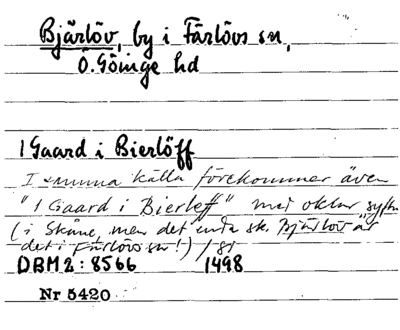 Bjärlöv, by i Färlövs sn,
Ö. Göinge hd
1 Gaard i Bierlöff
I samma källa förekommer även
"1 Gaard i Bierleff" med oklar syftn
(i Skåne, men det enda sk. Bjärlöv är
det i Färlövs sn!) /81
DBM2: 8566 1498
Nr 5420